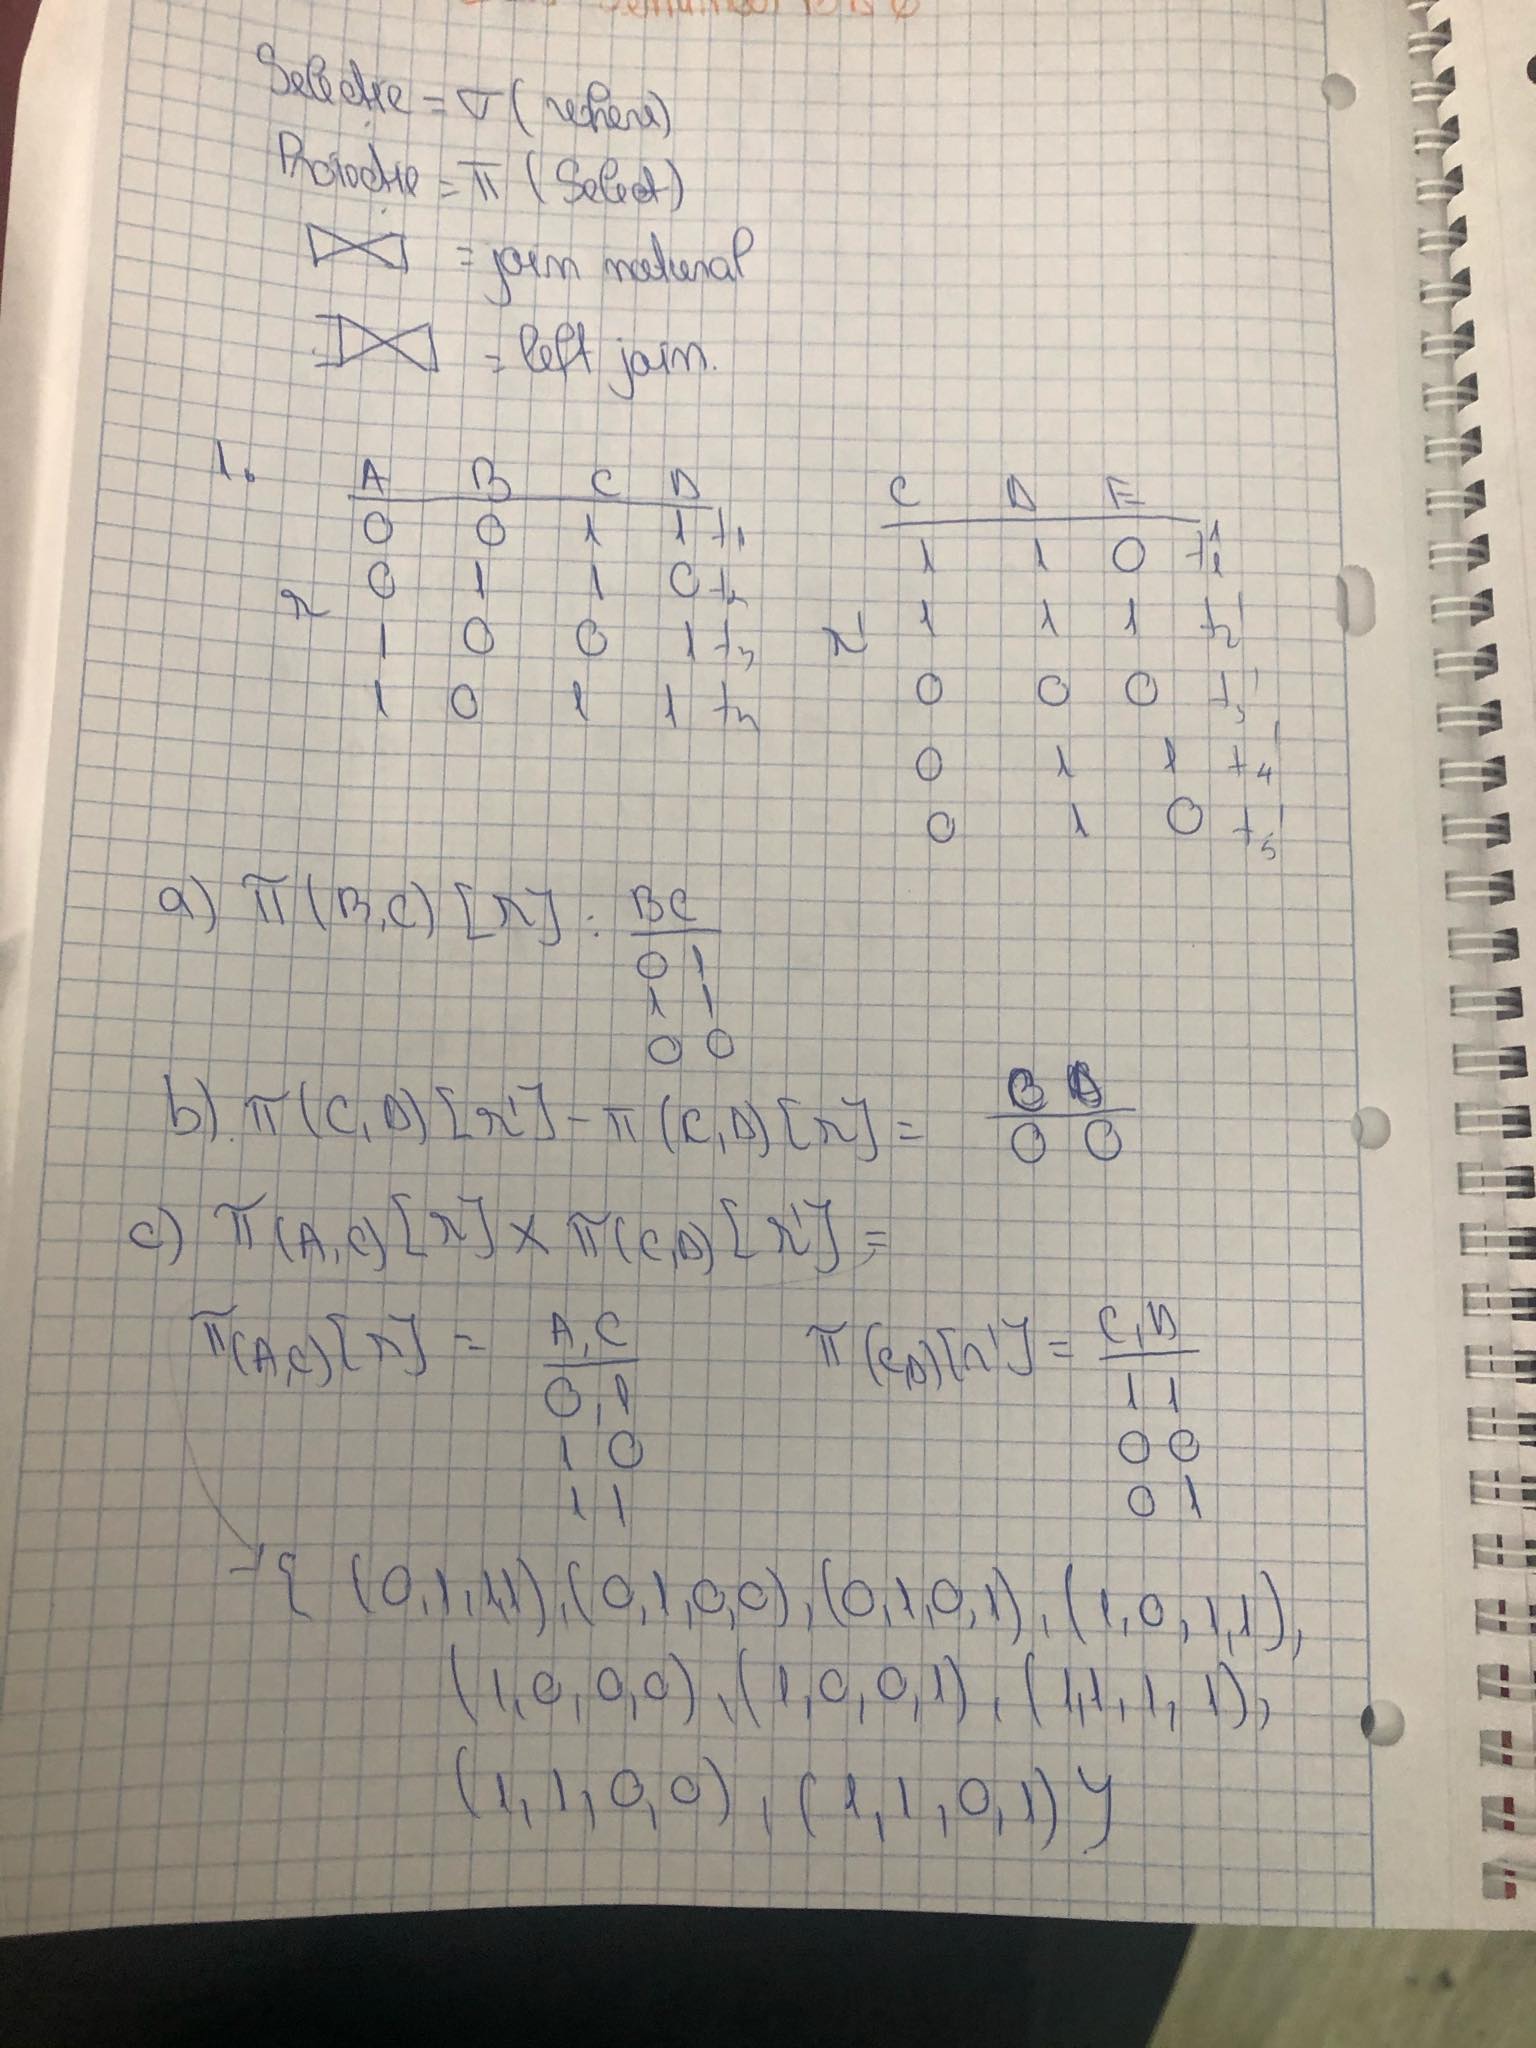 Selecție = σ (where)
Proiecție = π (Select)
⋈ = join natural
⟕ = left join.
1.
A B C D
0 0 1 1 t1
0 1 1 0 t2
r
1 0 0 1 t3
1 0 1 1 t4
C D E
1 1 0 t1'
r' 1 1 1 t2'
0 0 0 t3'
0 1 1 t4'
0 1 0 t5'
a) π(B,C) [r] : B C
0 1
1 1
0 0
b). π(C,D) [r'] - π(C,D) [r] = C D
0 0
c) π(A,C) [r] × π(C,D) [r'] =
π(A,C) [r] = A, C
0, 1
1 0
1 1
π(C,D) [r'] = C, D
1 1
0 0
0 1
{ (0,1,1,1), (0,1,0,0), (0,1,0,1), (1,0,1,1),
(1,0,0,0), (1,0,0,1), (1,1,1,1),
(1,1,0,0), (1,1,0,1) }